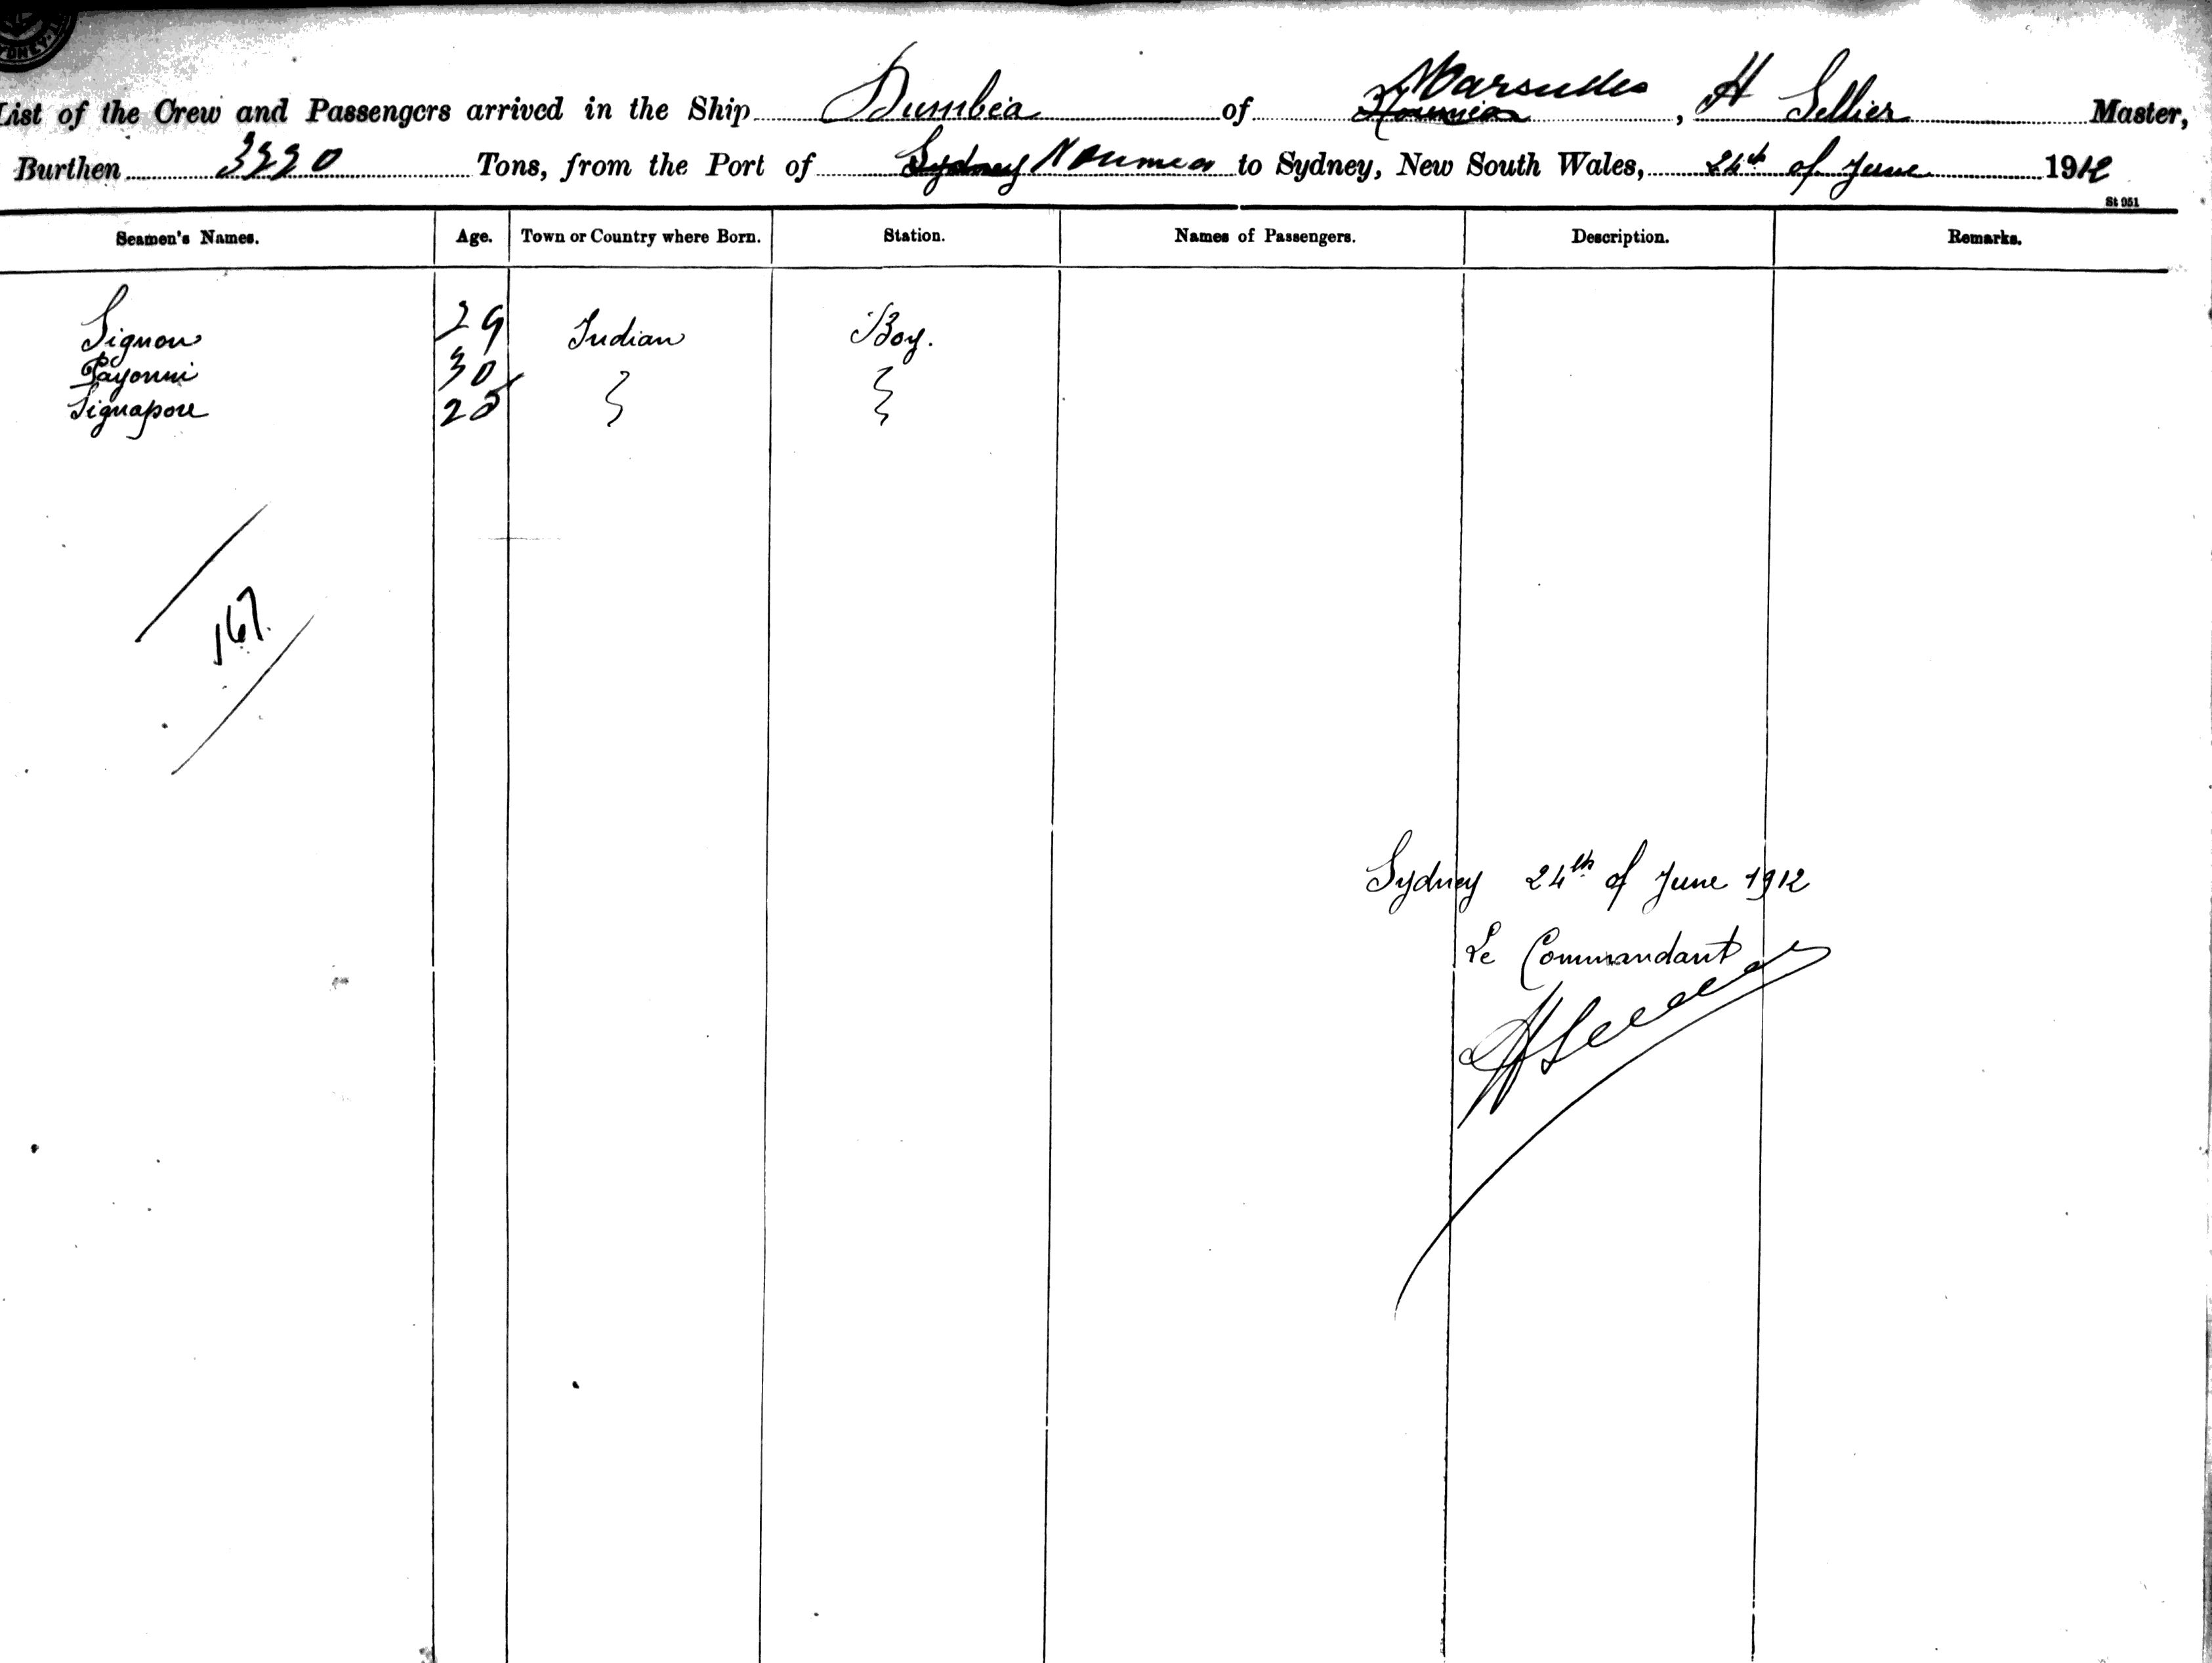 List of the Crew and Passengers arrived in the Ship Dumbéa of Noumea Marseilles, H Sellier Master,
Burthen 3220 Tons, from the Port of Sydney Noumea to Sydney, New South Wales, 24th of June 1912
St 951
Seamen's Names. Age. Town or Country where Born. Station. Names of Passengers. Description. Remarks.
Signon 29 Indian Boy.
Payonni 30
Signapore 25
167.
Sydney 24th of June 1912
Le Commandant
HSellier